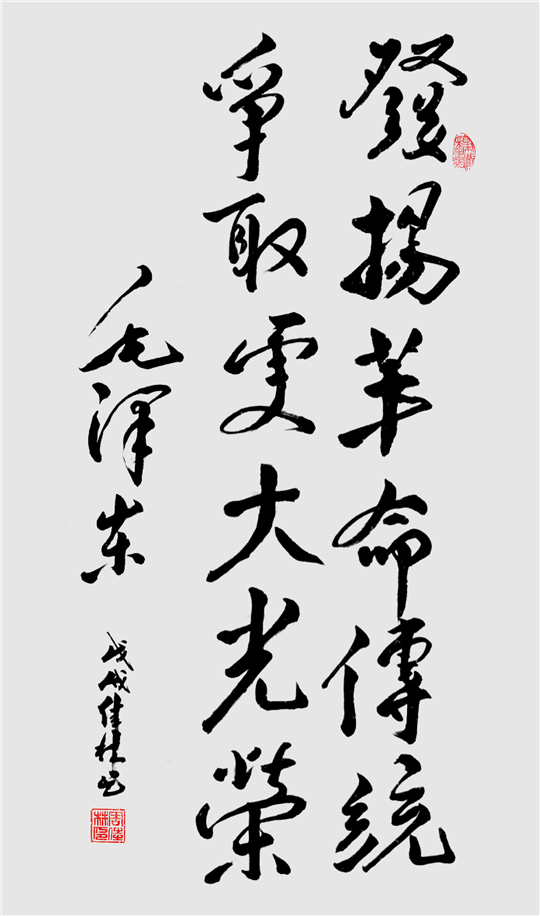 發揚革命傳統
爭取更大光榮
毛澤东
戊戌佳林书